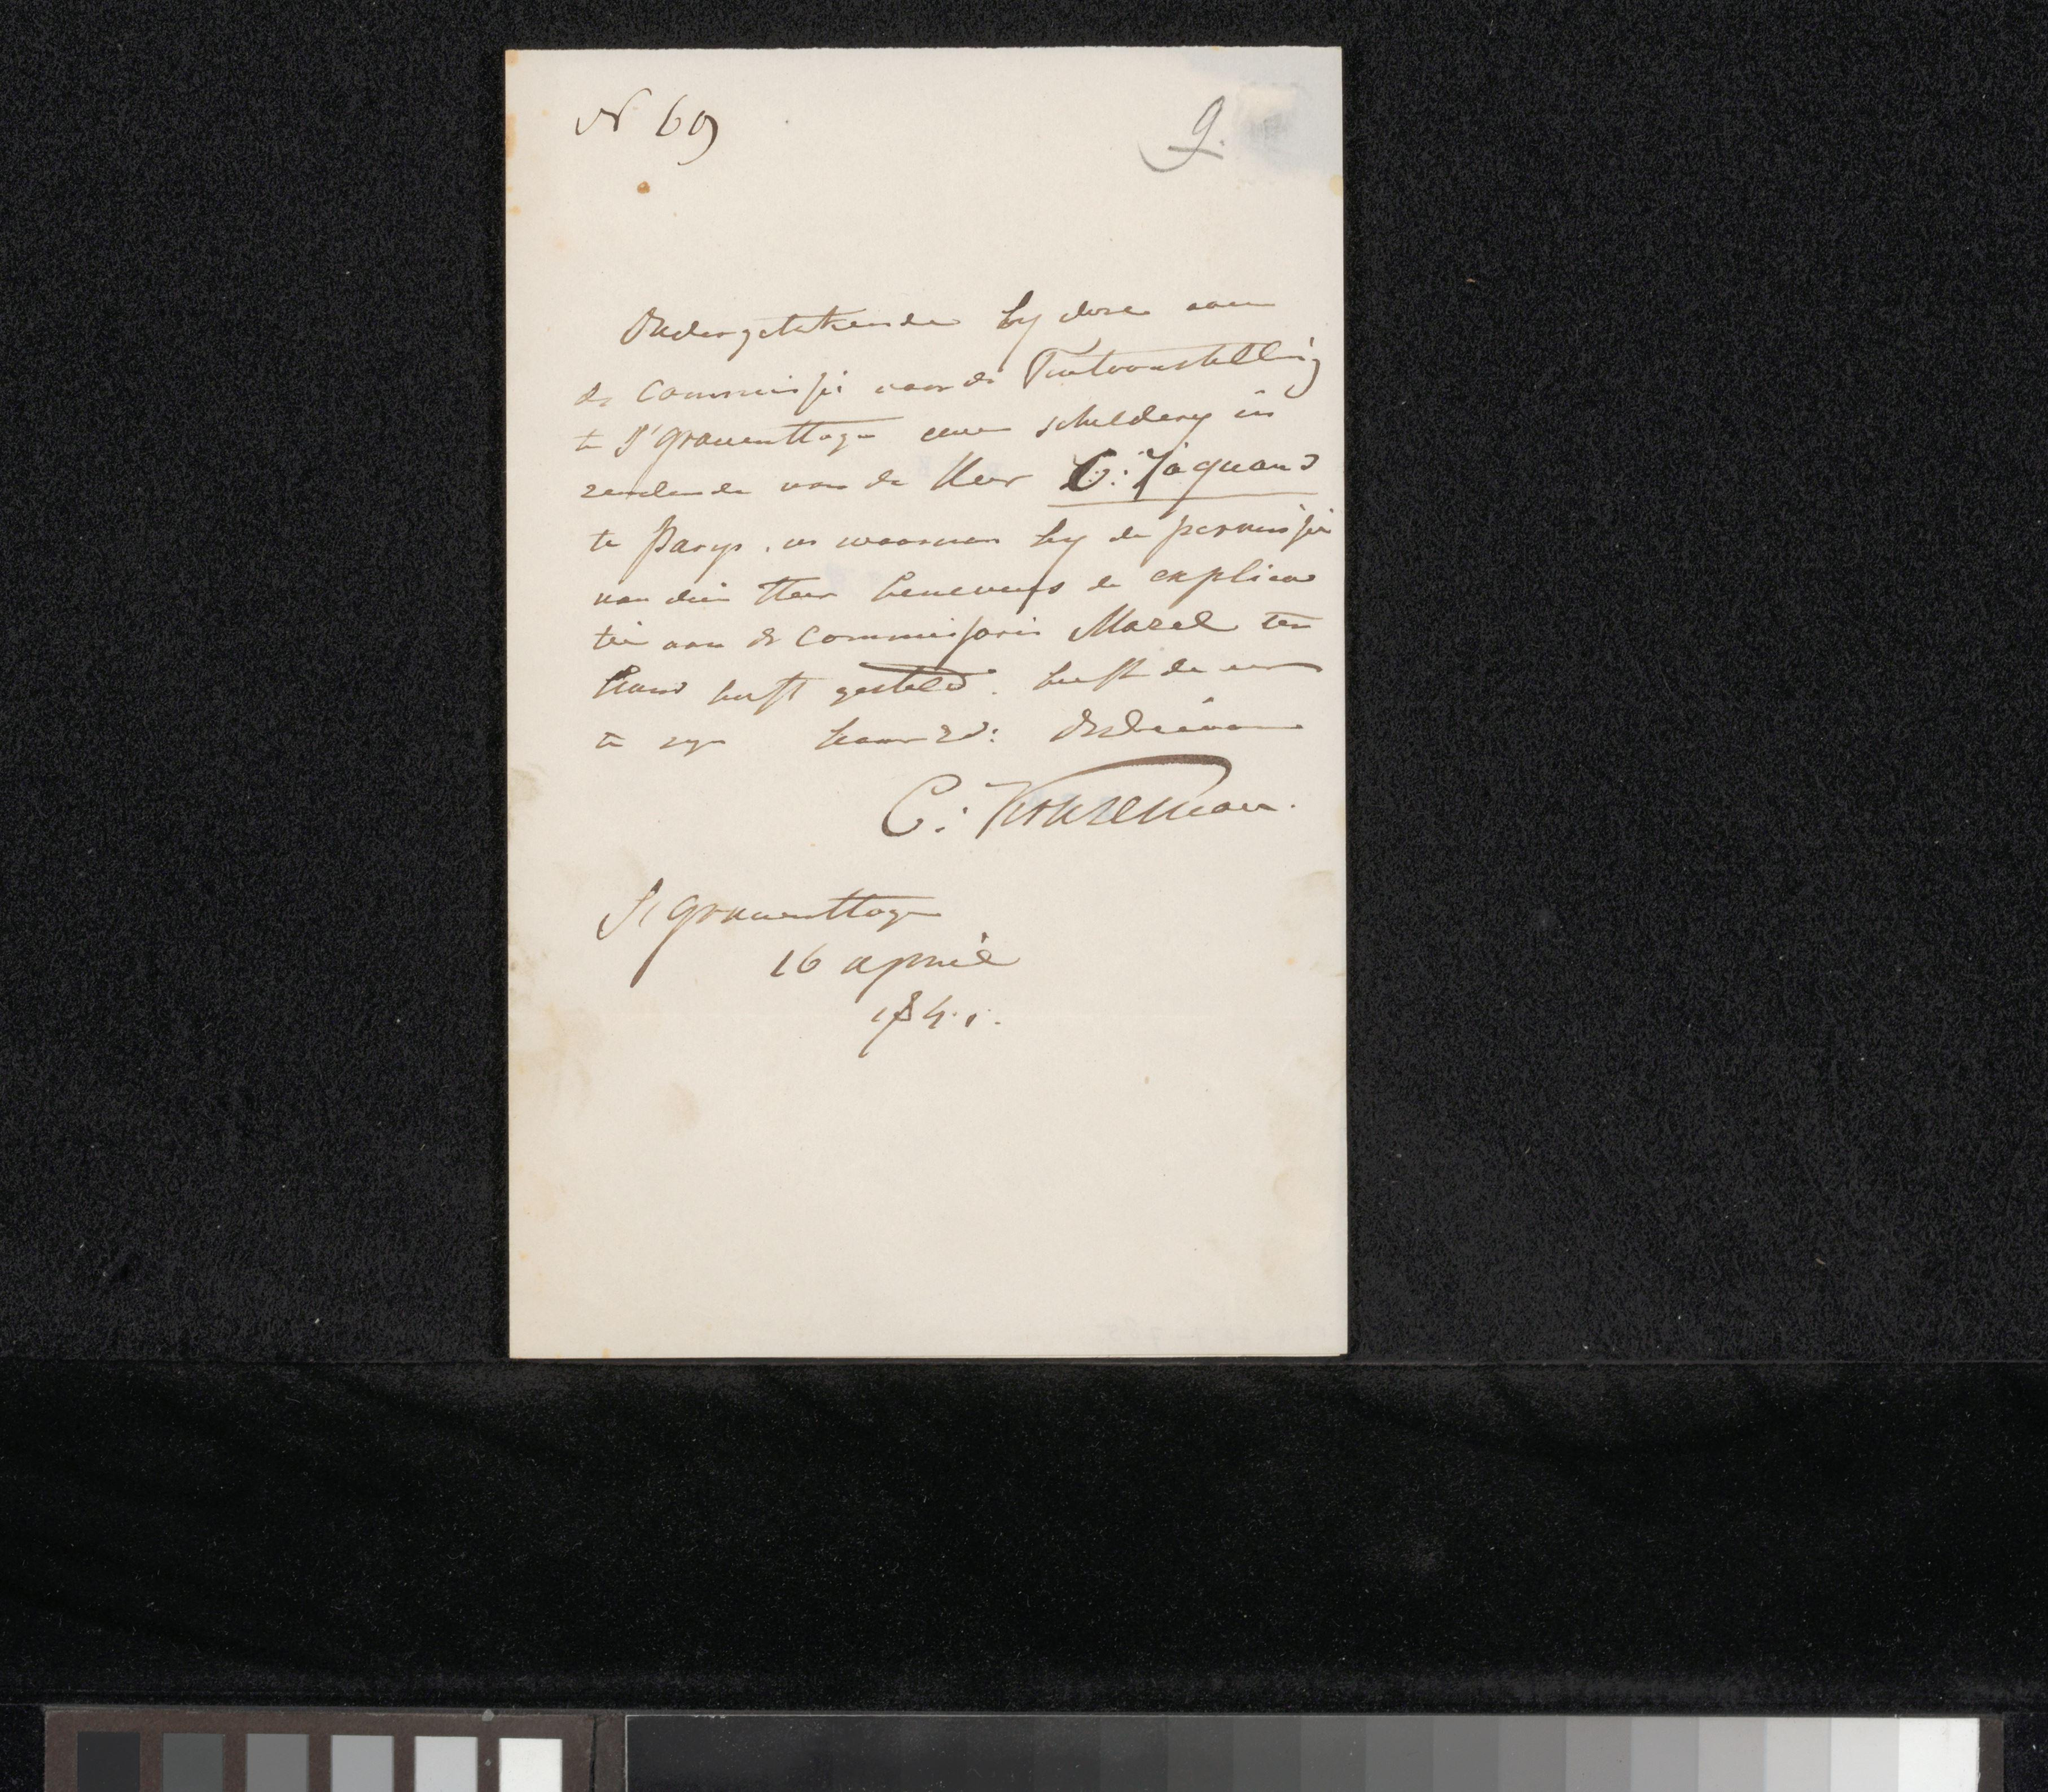 N 69
9.
Ondergetekende by dese aan
de Commissie voor de Tentoonstelling
te S'Gravenhage een schildery in
zendende van de Heer C: Jaquand
te Parys. en waarvan hy de permissie
van dien Heer benevens de explica
tie aan de Commissaris Mazel ten
hand heeft gesteld. heeft de eer
te zyn haar Ed:
C: Kruseman.
S'Gravenhage
16 april
1841.